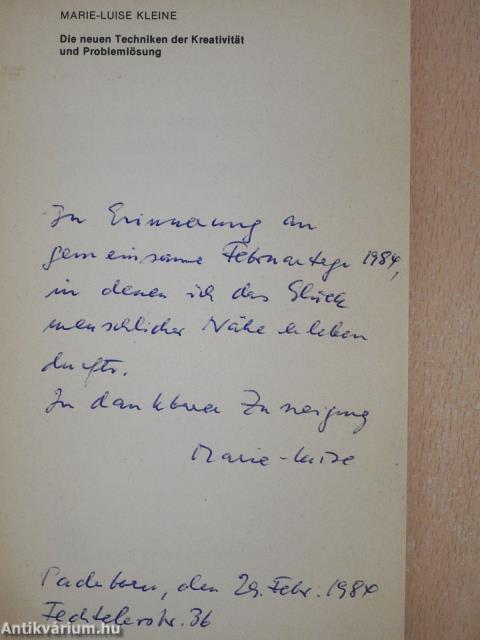 MARIE-LUISE KLEINE
Die neuen Techniken der Kreativität
und Problemlösung
Zu Erinnerung an
gemeinsame Februartage 1984,
in denen ich das Glück
menschlicher Nähe erleben
durfte.
In dankbarer Zuneigung
Marie-Luise
Paderborn, den 29. Febr. 1984
Fechtelerstr. 36
Antikvárium.hu